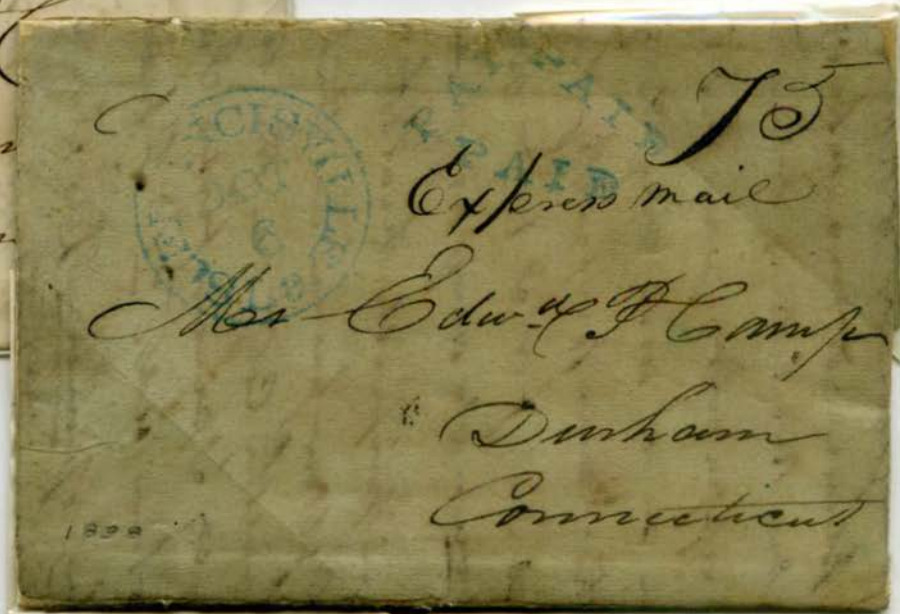 75
PAID
Express mail
OCT
6
Mr Edwd P Camp
Durham
Connecticut